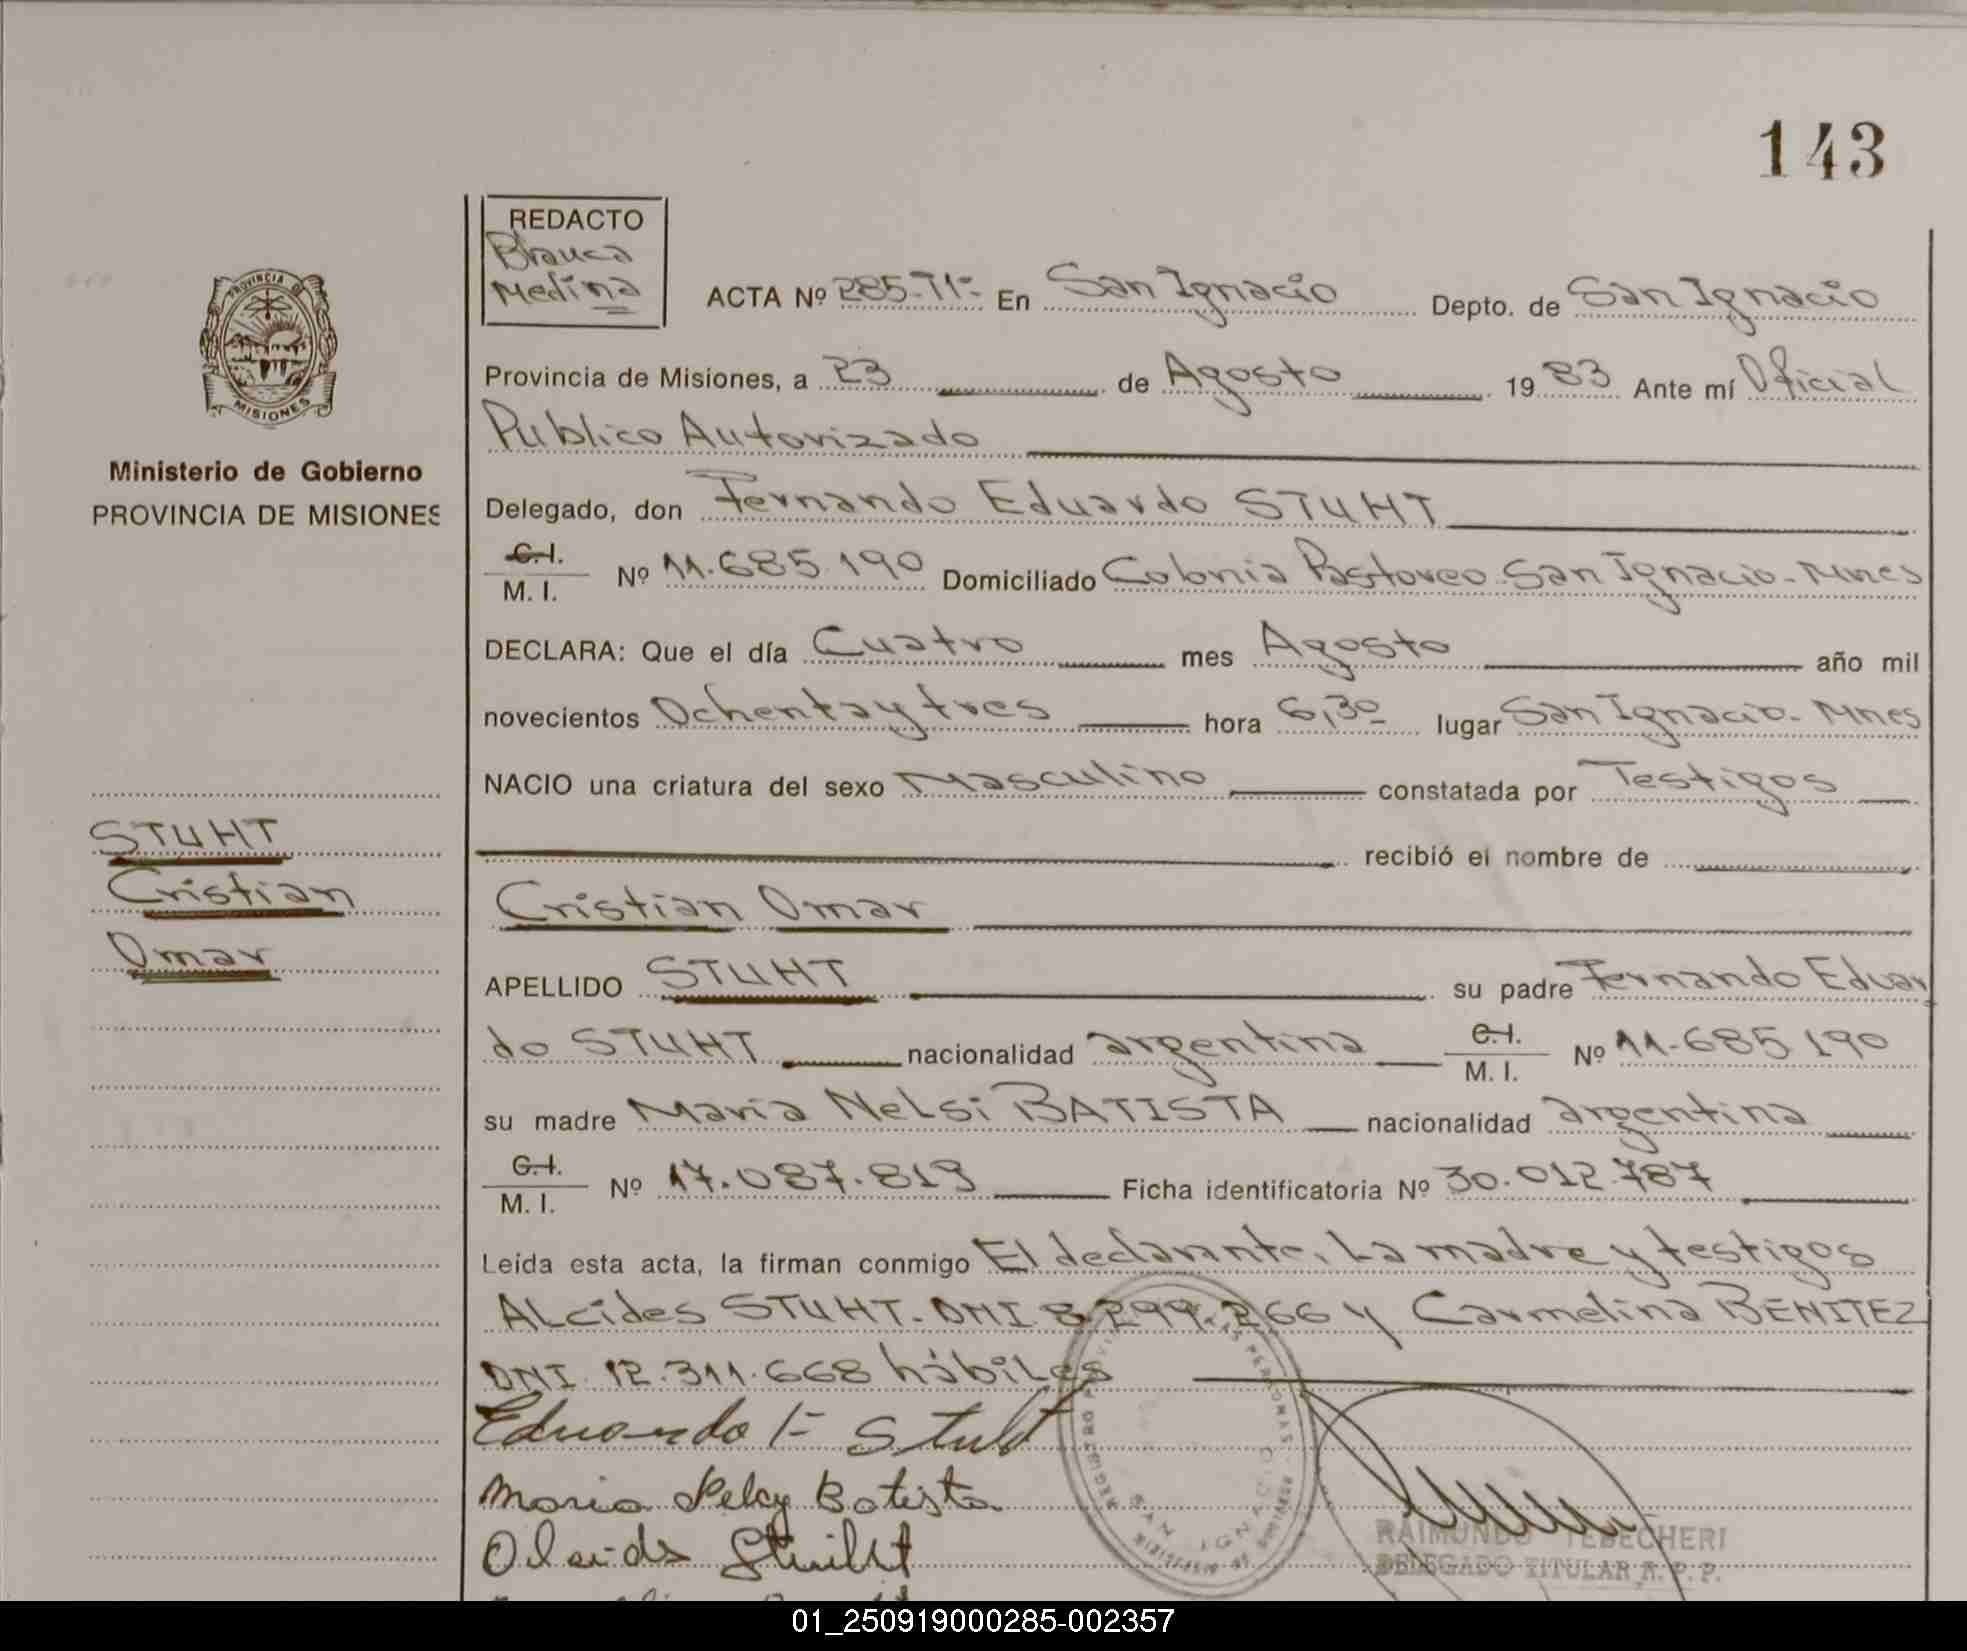 143
REDACTO
Blanca
Medina
ACTA Nº 285-T1º- En San Ignacio Depto. de San Ignacio
PROVINCIA DE
MISIONES
Provincia de Misiones, a 23 de Agosto 1983 Ante mí Oficial
Publico Autorizado
Ministerio de Gobierno
PROVINCIA DE MISIONES
Delegado, don Fernando Eduardo STUHT
C.I.
M. I. Nº 11.685.190 Domiciliado Colonia Pastoreo San Ignacio-Mnes
DECLARA: Que el día Cuatro mes Agosto año mil
novecientos Ochenta y tres hora 6,30 lugar San Ignacio-Mnes
NACIO una criatura del sexo Masculino constatada por Testigos
recibió el nombre de
STUHT
Cristian
Omar
Cristian Omar
APELLIDO STUHT su padre Fernando Eduar
do STUHT nacionalidad argentina C.I.
M. I. Nº 11.685.190
su madre Maria Nelsi BATISTA nacionalidad argentina
C.I.
M. I. Nº 17.087.819 Ficha identificatoria Nº 30.012.787
Leída esta acta, la firman conmigo El declarante, La madre y testigos
ALcides STUHT-DNI 8.299.266 y Carmelina BENITEZ
DNI 12.311.668 hábiLes
Eduardo F- Stuht
Maria Nelcy Batista
SAN IGNACIO
RAIMUNDO TEBECHERI
DELEGADO TITULAR R.P.P.
01_250919000285-002357